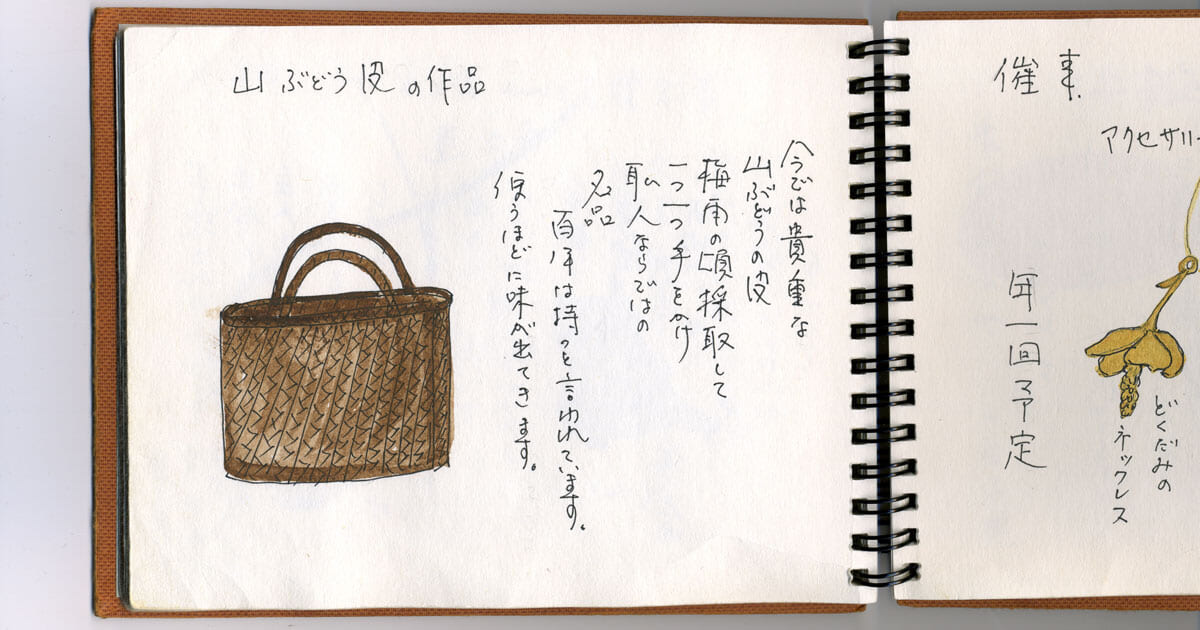 山ぶどう皮の作品
今では貴重な
山ぶどうの皮
梅雨の頃採取して
一つ一つ手をかけ
職人ならではの
名品
百年は持つと言われています。
使うほどに味が出てきます。
催事
アクセサリー
年一回予定
どくだみの
ネックレス